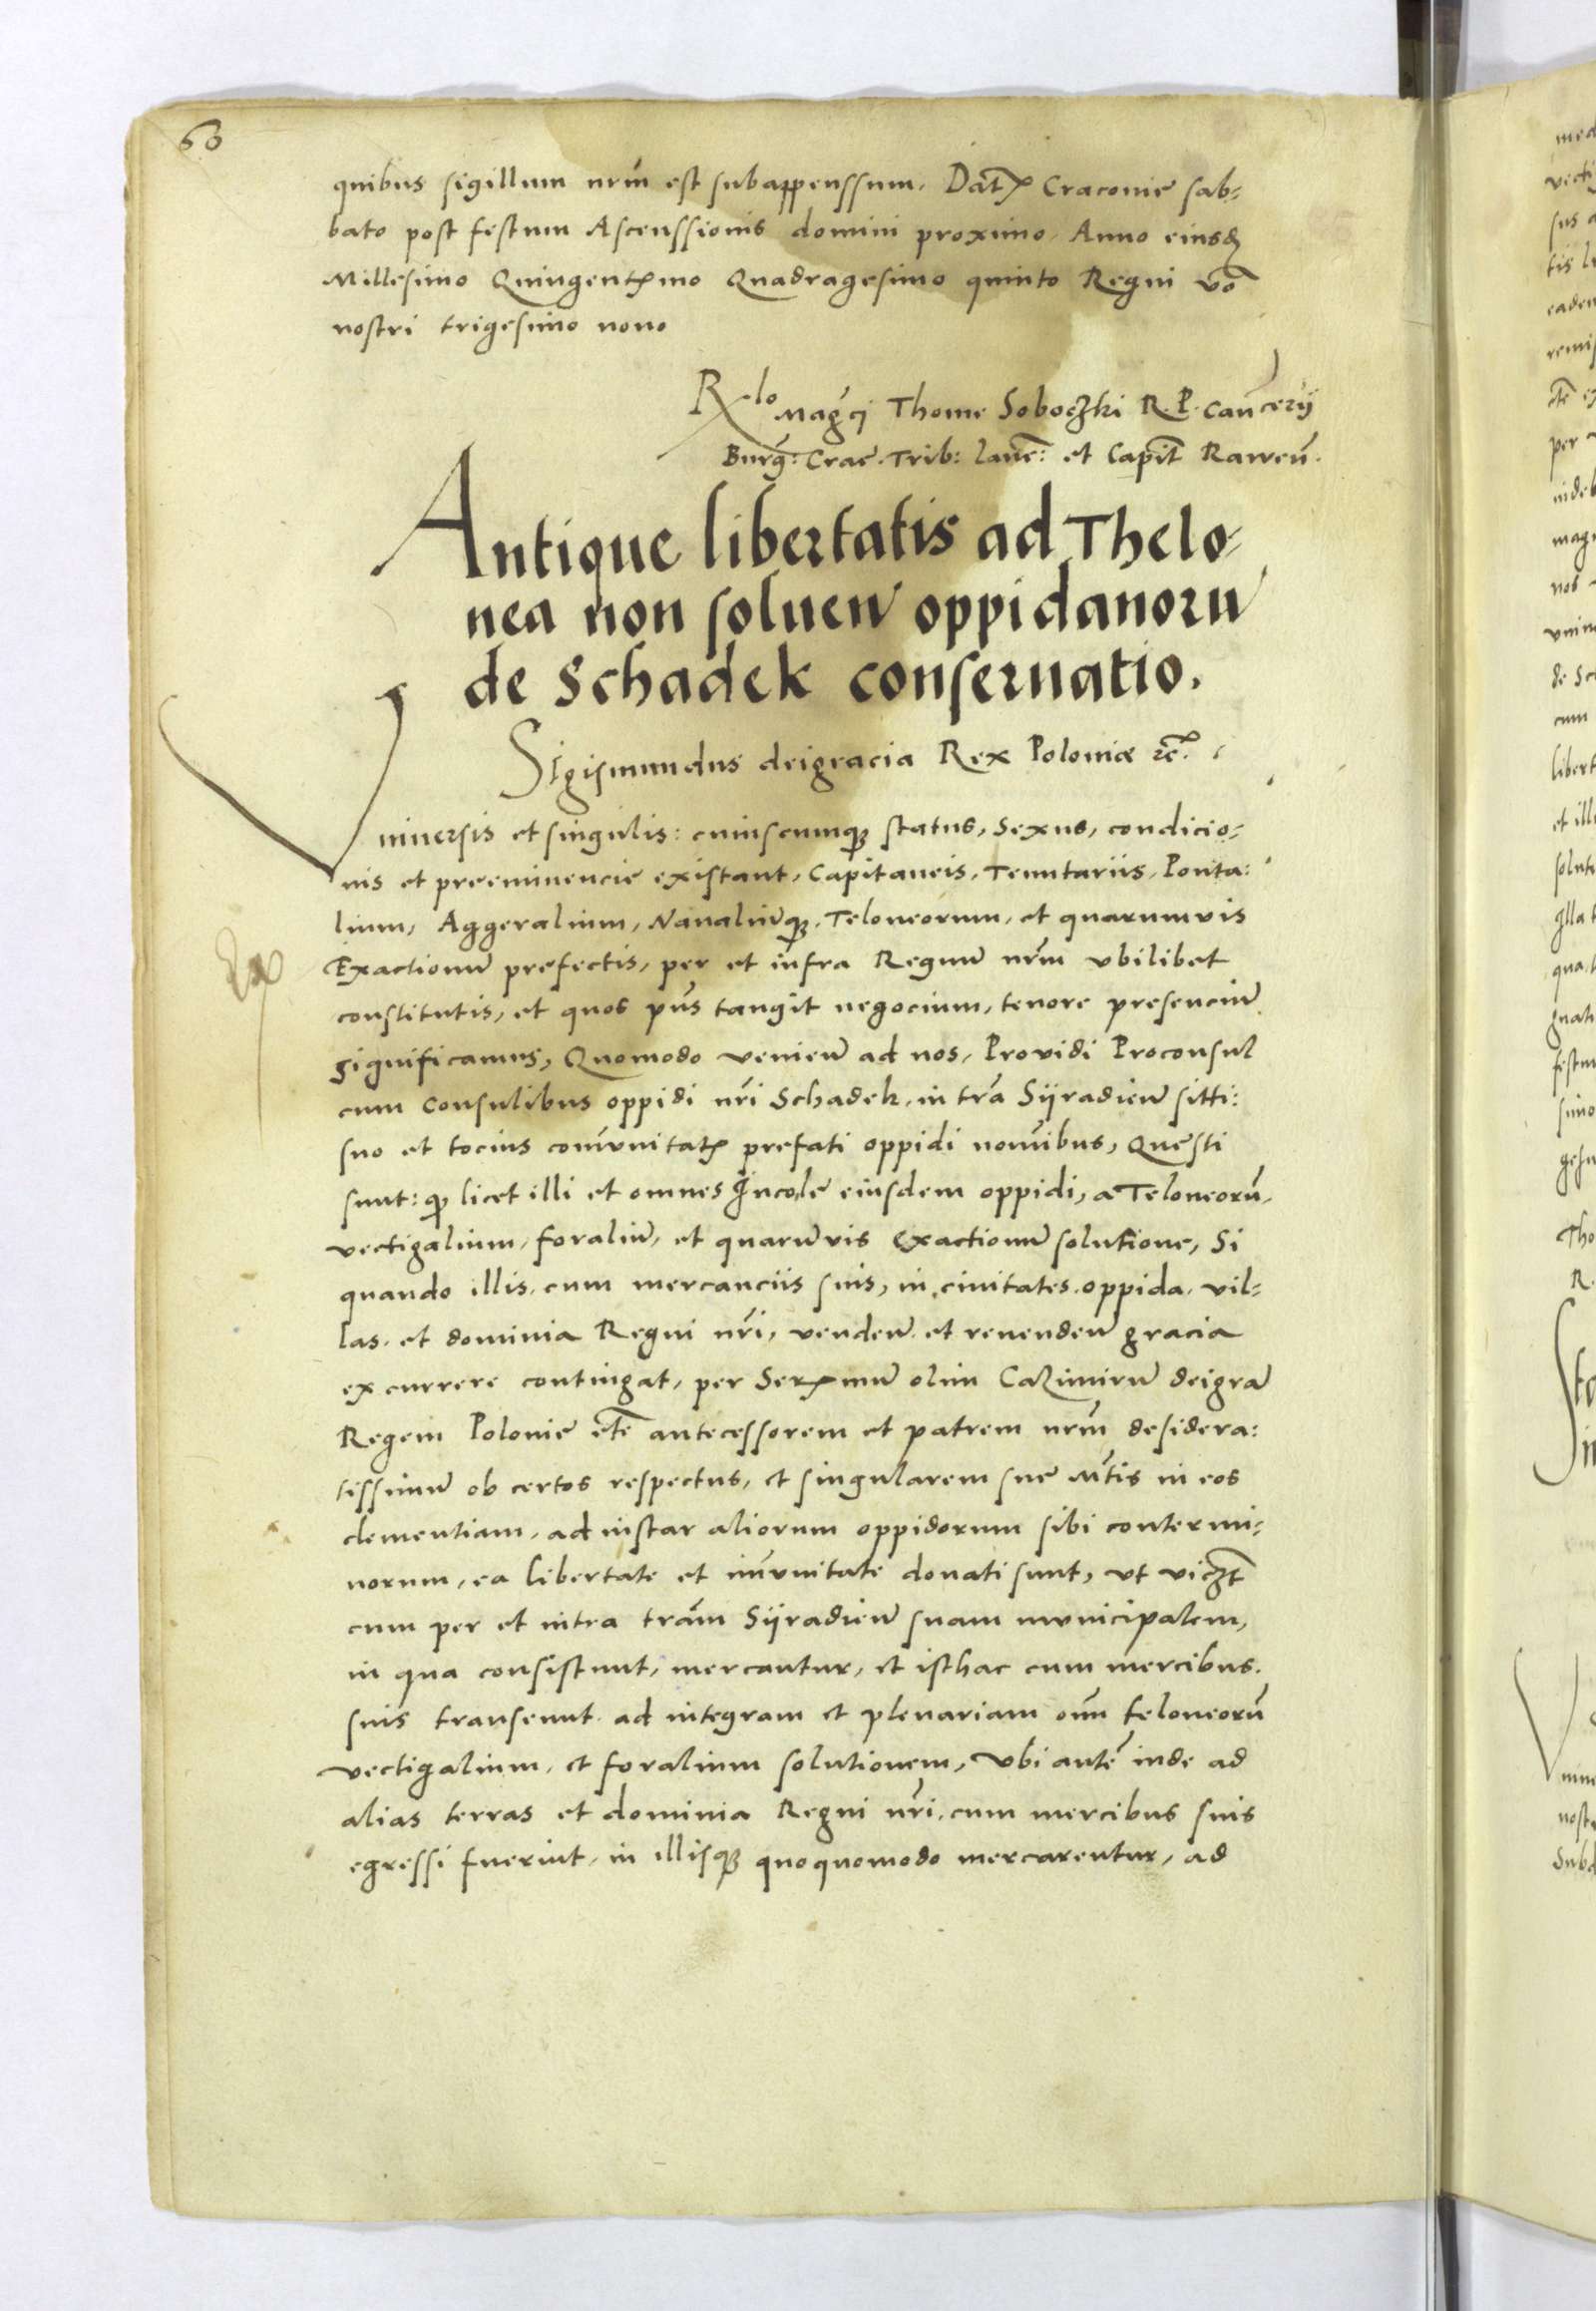 60
quibus sigillum nrm̃ est subappenssum. Dat Craconie sab-
bato post festum Ascenssionis domini proximo. Anno eiusd
Millesimo Quingentmo Quadragesimo quinto Regni vo
nostri trigesimo nono
Rlo Magci Thome Soboczki R. P. Cancerij
Burg: Crac. Trib: lanc: et Capit Rawen.
Antique libertatis ad Thelo-
nea non soluen oppidanoru
de Schadek conseruatio.
Sigismundus deigracia Rex Poloniæ rc.
Vniuersis et singulis: cuiuscumq status, Sexus, condicio-
nis et preeminencie existant, Capitaneis, Tenutariis, Ponta:
lium, Aggeralium, Naualiuq, Teloneorum, et quarumvis
Exactionu prefectis, per et infra Regnu nrm vbilibet
constitutis, et quos pns tangit negocium, tenore presenciu
significamus, Quomodo venien ad nos, Providi Proconsul
cum Consulibus oppidi nri Schadek, in tra Syradien sitti:
suo et tocius comvnitat prefati oppidi nomibus, Questi
sunt: q licet illi et omnes Incole eiusdem oppidi, a Teloneoru,
vectigalium, foraliu, et quaruvis exactionu solutione, Si
quando illis, cum mercanciis suis, in civitates, oppida, vil-
las, et dominia Regni nri, venden et reuenden gracia
excurrere contingat, per Sermu olim Cazimiru deigra
Regem Polonie etc antecessorem et patrem nrm desidera:
tissimu ob certos respectus, et singularem sue Mtis in eos
clementiam, ad instar aliorum oppidorum sibi contermi-
norum, ea libertate et imvnitate donati sunt, vt viczt
cum per et intra tram Syradien suam mvnicipalem,
in qua consistunt, mercantur, et isthac cum mercibus
suis transeunt ad integram et plenariam oim teloneoru
vectigalium, et foralium solutionem, vbi aute inde ad
alias terras et dominia Regni nri, cum mercibus suis
egressi fuerint, in illisq quoquomodo mercarentur, ad